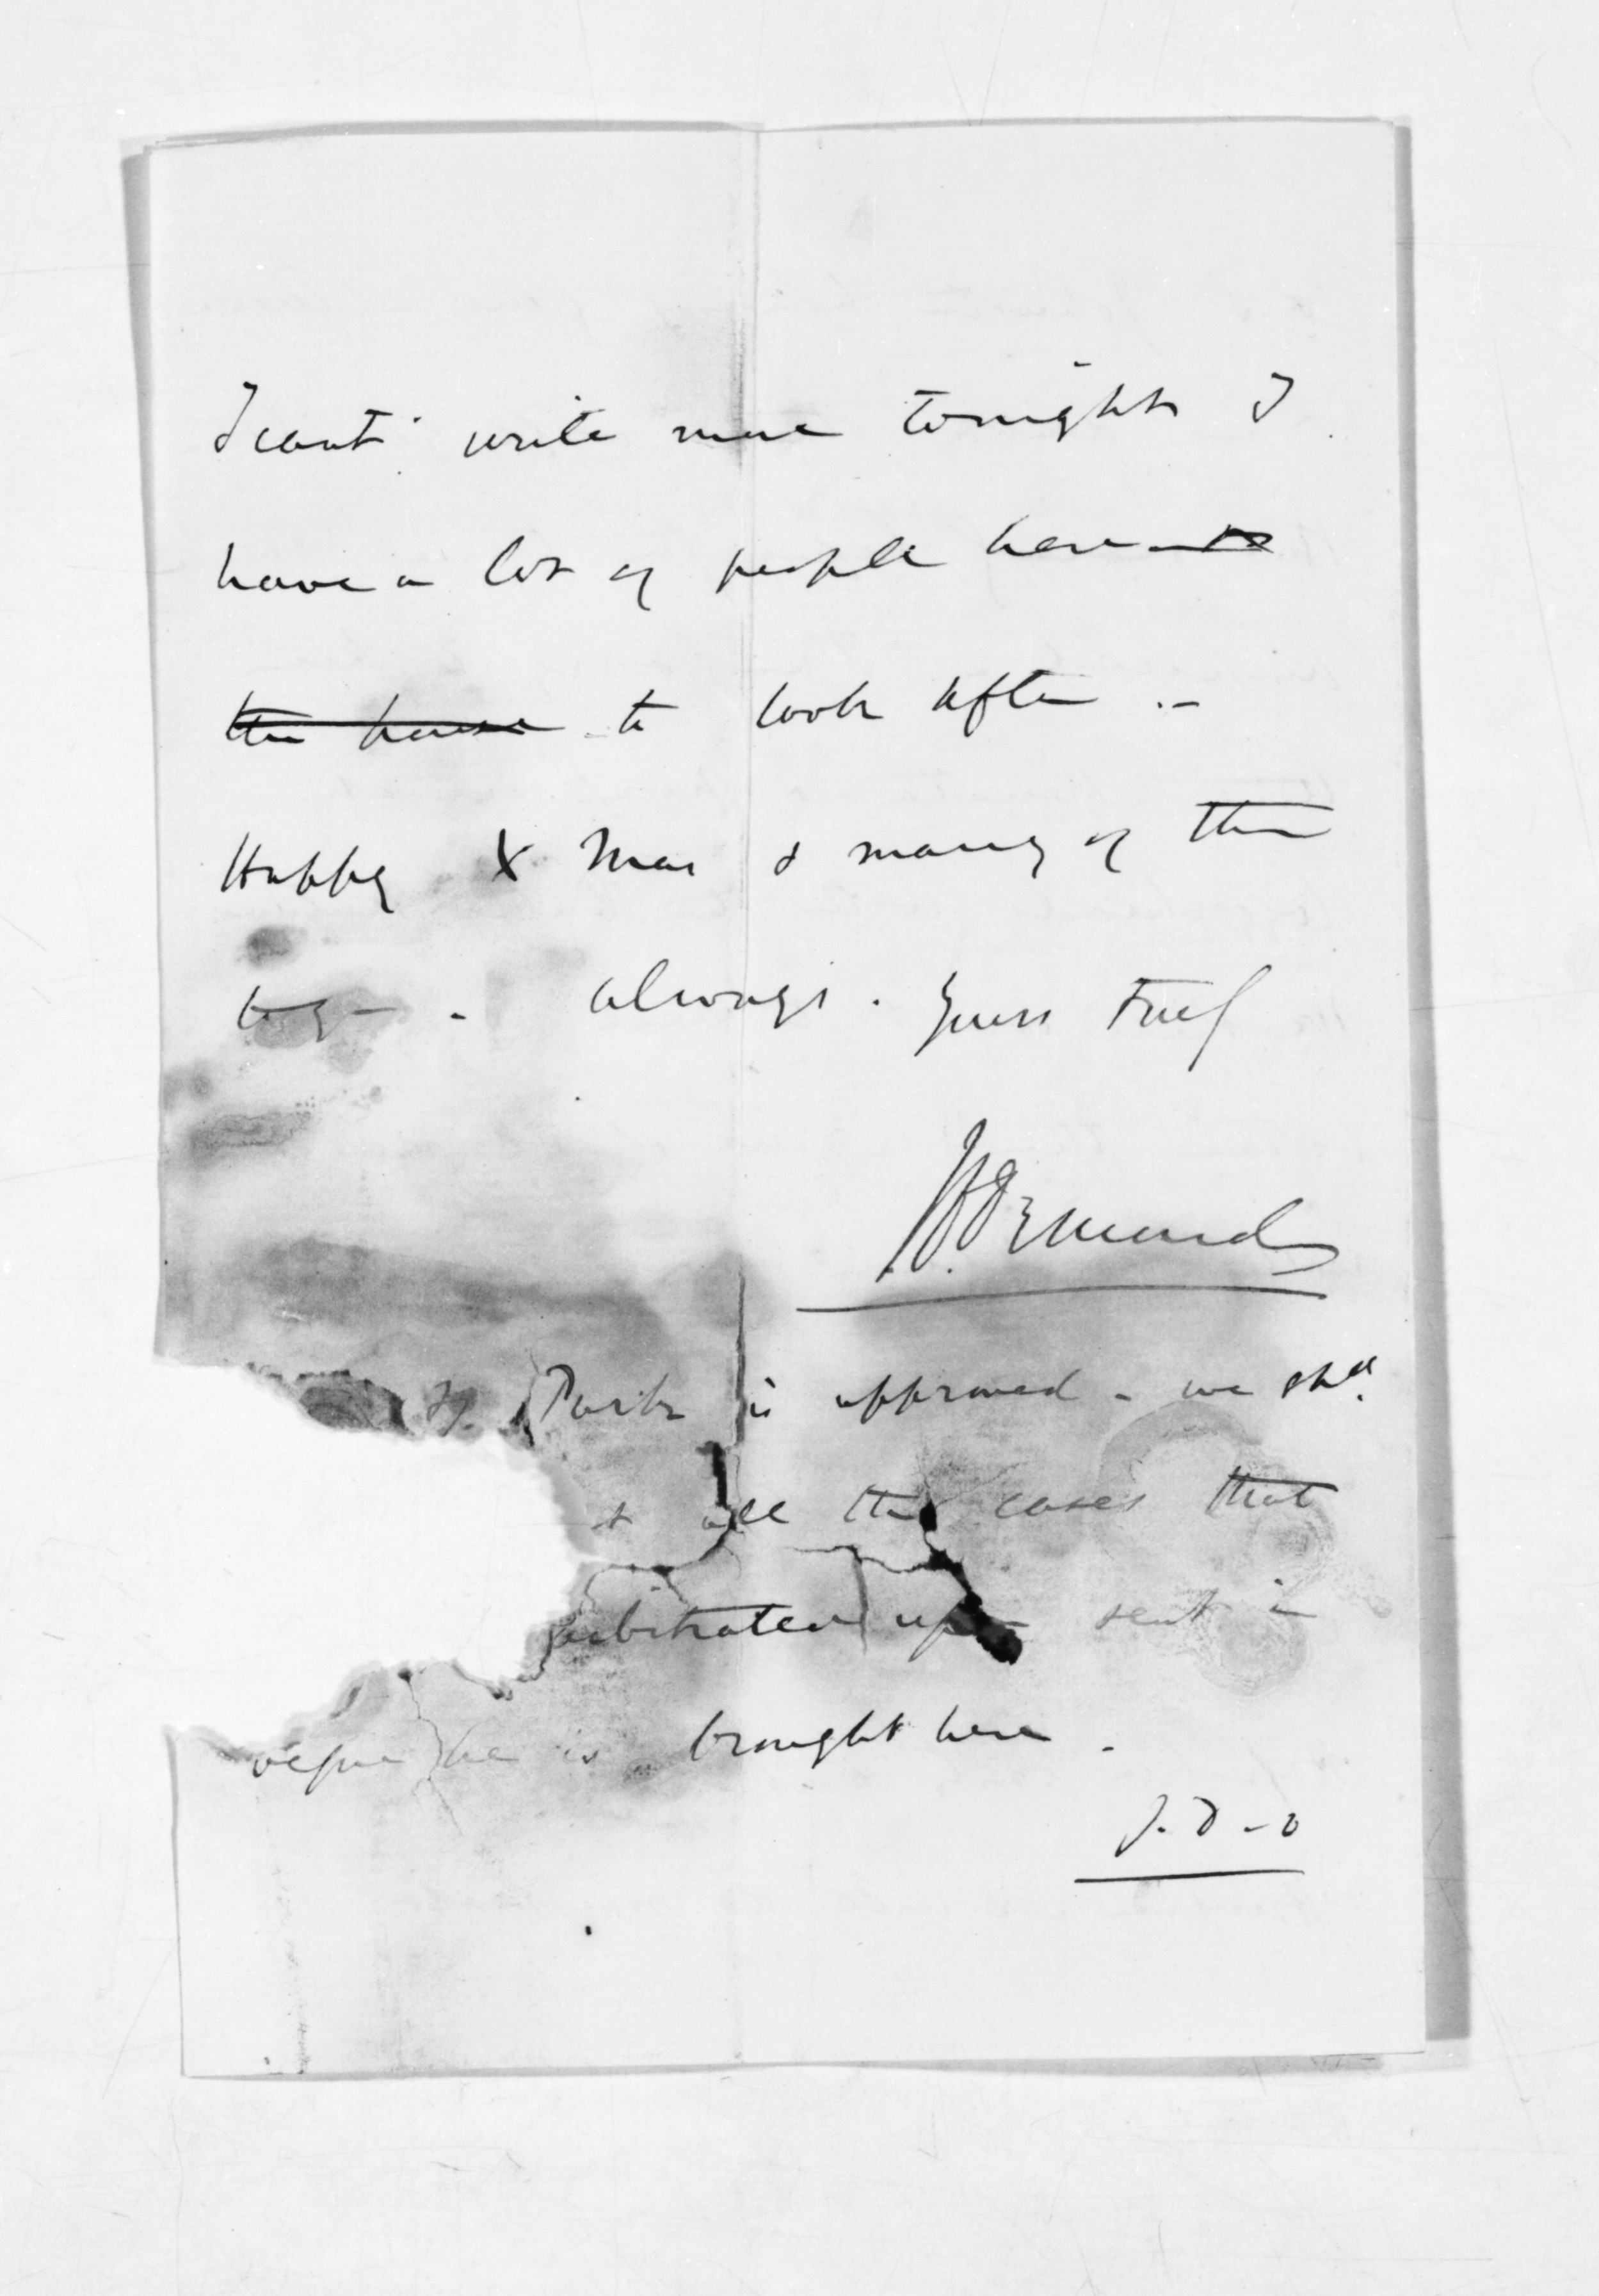 I cant write more tonight I
have a lot of people here
to look after .-
Happy X Mas & many of them
to you - always. Yours Truly
JD Ormond
Park is approved - we shd.
& all the cases that
arbitrated upon sent in
before he is brought here.
J.D.O